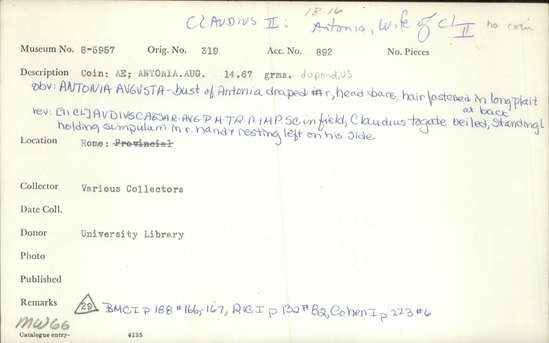 18-16
CLAUDIUS II: Antonia, Wife of Cl II no coin
Museum No. 8-5957 Orig. No. 319 Acc. No. 892 No. Pieces
Description Coin: AE; ANTONIA.AUG. 14.67 grms. dupondius
obv: ANTONIA AVGVSTA - bust of Antonia draped r, head bare, hair fastened in long plait
at back
rev: CLAVDIVS CAESAR AVG P M TR P IMP. SC in field, Claudius togate veiled, standing l
holding simpulum in r. hand & resting left on his side
Location Rome: Provincial
Collector Various Collectors
Date Coll.
Donor University Library
Photo
Published
Remarks 29 BMC I p 188 #166, 167, RIC I p 132 #82, Cohen I p 223 #6
MW66
Catalogue entry- 4155